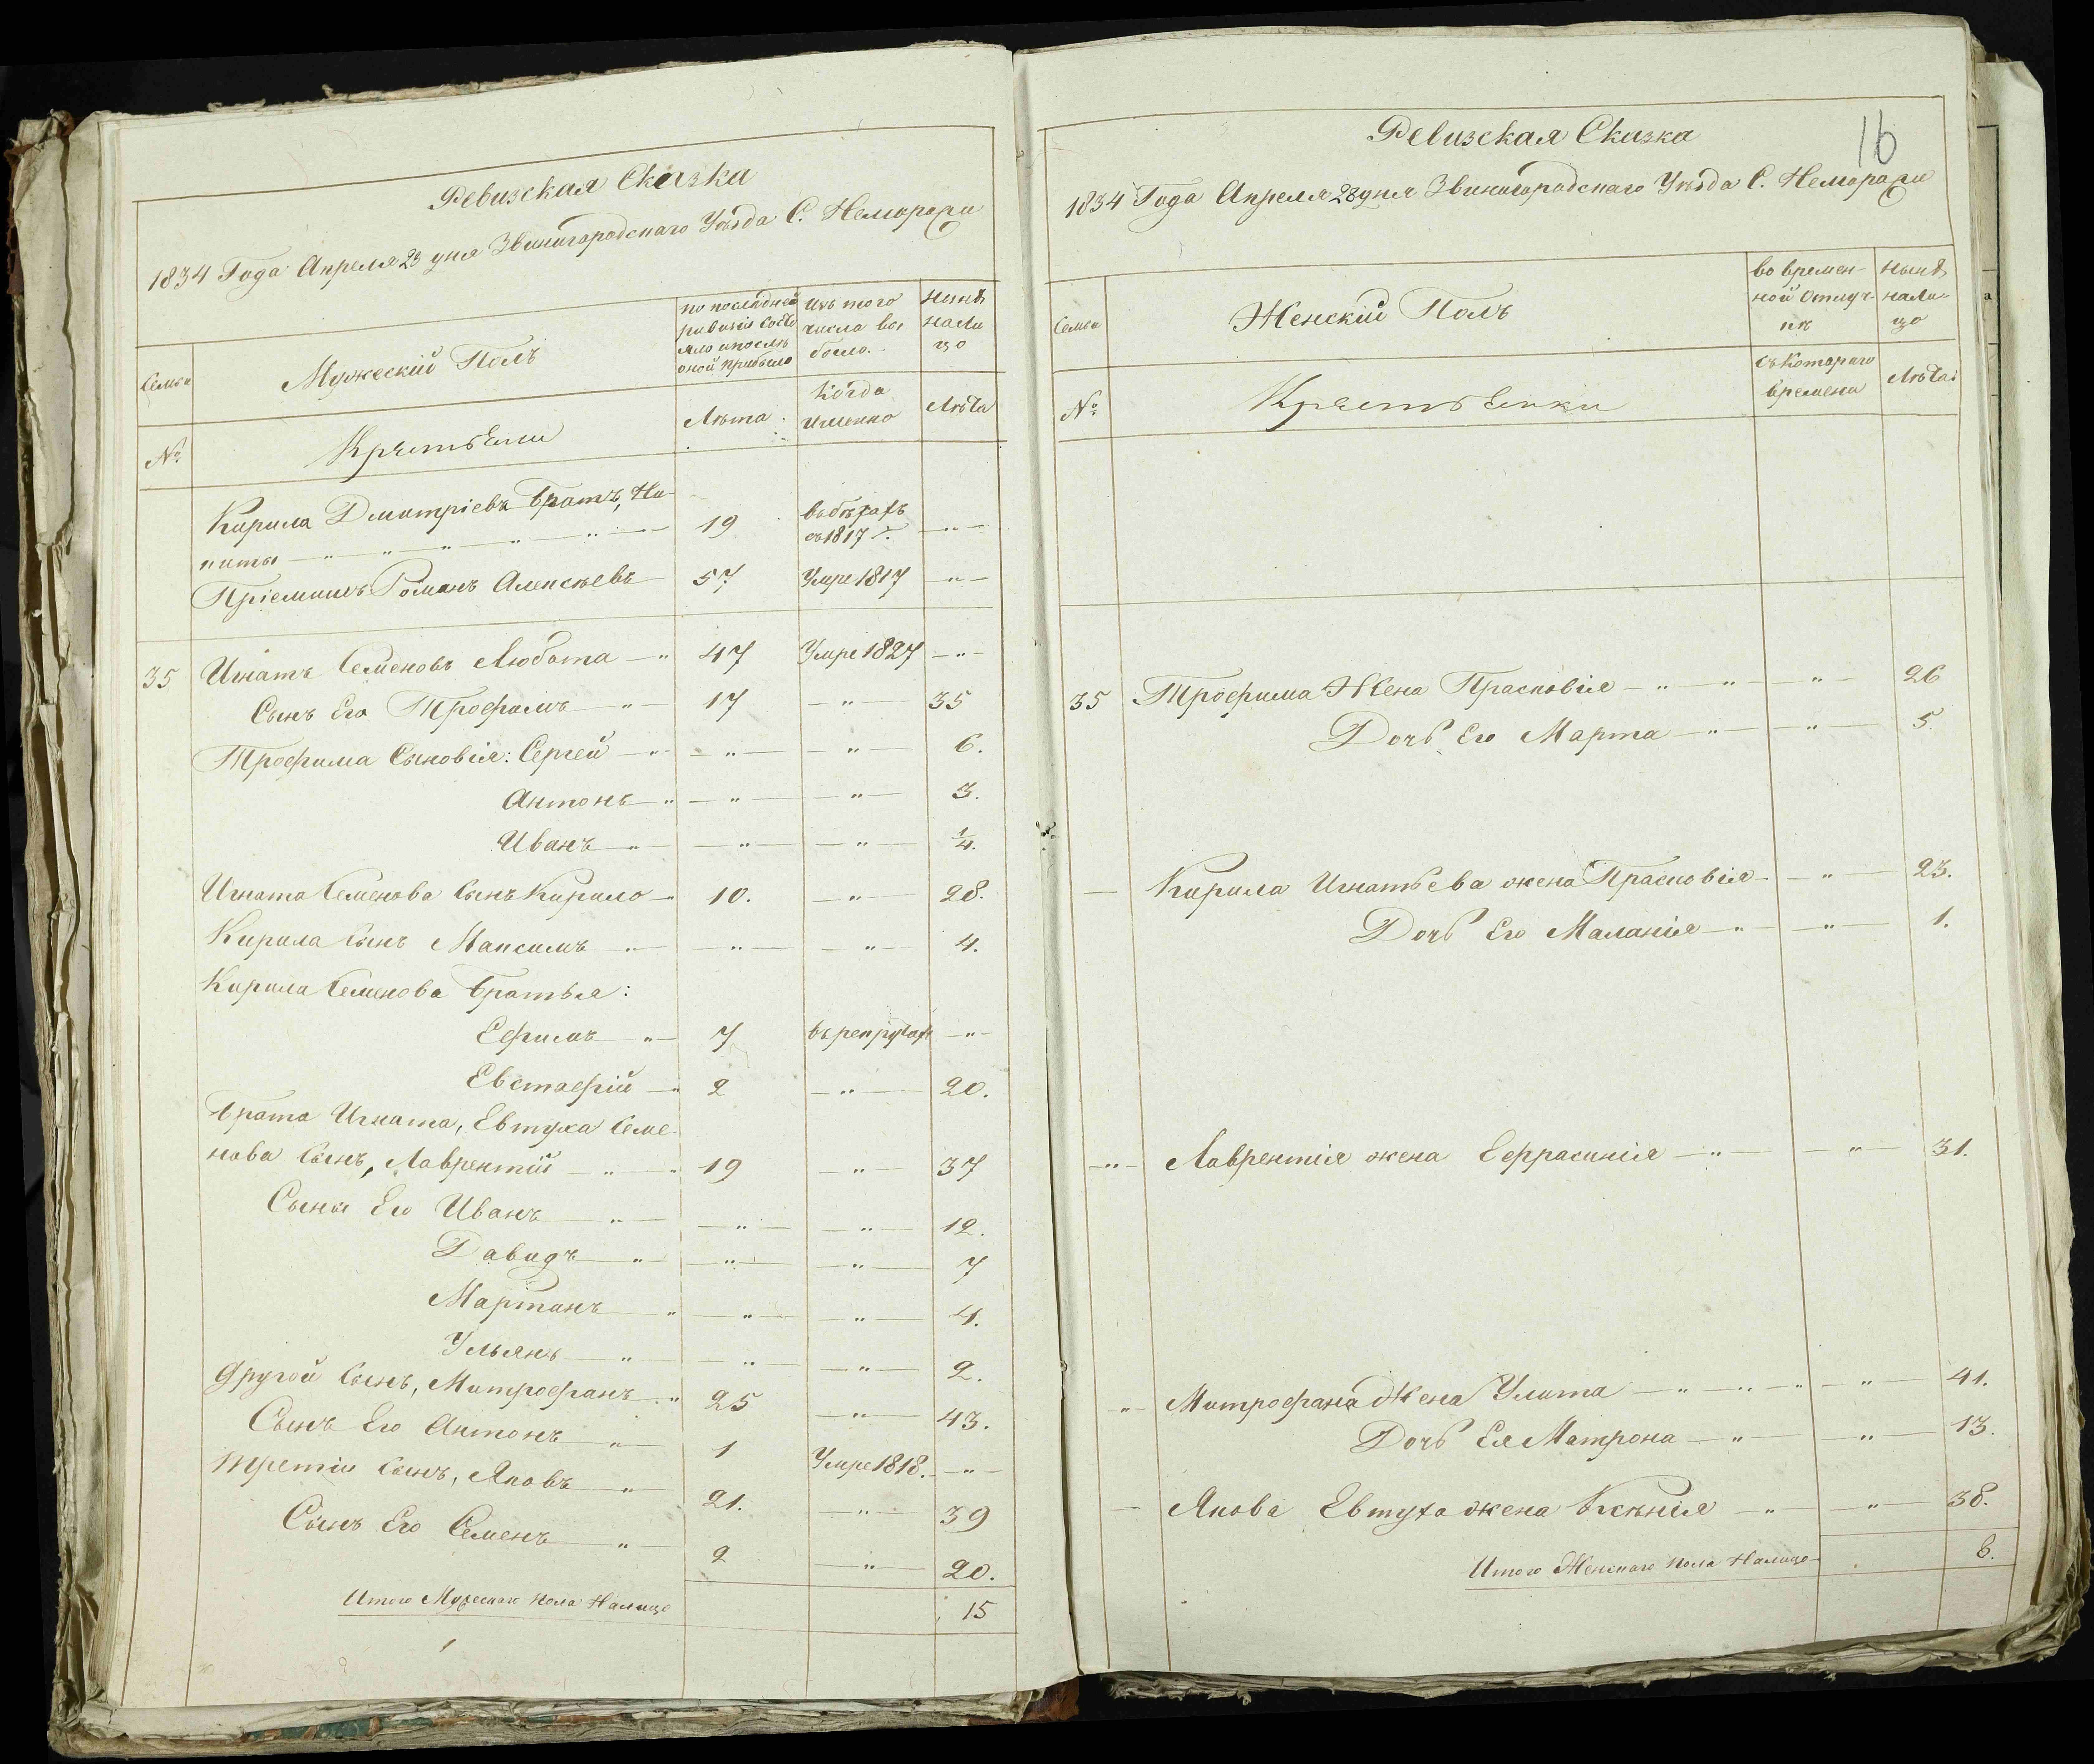 Ревизская Сказка
1834 Года Апреля 23 дня Звинигородскаго Уѣзда С. Неморожи
Семьи
Мужеский Полъ
по последней
ривизіи состо
яло и послѣ
оной прибыло
Изъ того
числа вы
было.
Нынѣ
нали
цо
№
Крестьяни
Лѣта
Когда
именно
Лѣта
Кирила Дмитріевъ братъ, Ни-
киты — 19 въбѣгахъ
съ 1817 г. —
Пріемышъ Романъ Алексѣевъ 57 Умре 1817 —
35 Игнатъ Семеновъ Любота — 47 Умре 1827 —
Сынъ Его Трофимъ — 17 — 35
Трофима Сыновія: Сергей — — — 6.
Антонъ — — — 3.
Иванъ — — — 1/4.
Игната Семенова Сынъ Кирило — 10. — 28.
Кирила Сынъ Максимъ — — — 4.
Кирила Семенова братья:
Ефимъ — 7 въ рекрутахъ —
Евстафій — 2 — 20.
брата Игната, Евтуха Семе-
нова Сынъ, Лаврентій — 19 — 37
Сыны Его Иванъ — — — 12.
Давидъ — — — 7
Мартинъ — — — 4.
Ульянъ — — — 2.
Другой Сынъ, Митрофанъ 25 — 43.
Сынъ Его Антонъ — 1 Умре 1818. —
Третіи Сынъ, Яковъ — 21. — 39
Сынъ Его Семенъ — 2 — 20.
Итого Мужескаго пола Налицо 15
16
Ревизская Сказка
1834 Года Апреля 28 дня Звинигородскаго Уѣзда С. Неморожи
Семьи
Женскій Полъ
во времен-
ной отлуч-
кѣ
Нынѣ
нали-
цо
№
Крестьянки
съ Котораго
времени
Лѣта
35 Трофима Жена Прасковія — — 26
Дочь Его Марта — — 5
— Кирила Игнатьева жена Прасковія — 23.
Дочь Его Маланія — — 1.
— Лаврентія жена Ефрасинія — — 31.
— Митрофана Жена Улита — — 41.
Дочь Ея Матрона — — 13.
— Якова Евтуха жена Ксѣнія — — 38.
Итого Женскаго пола Налицо 8.